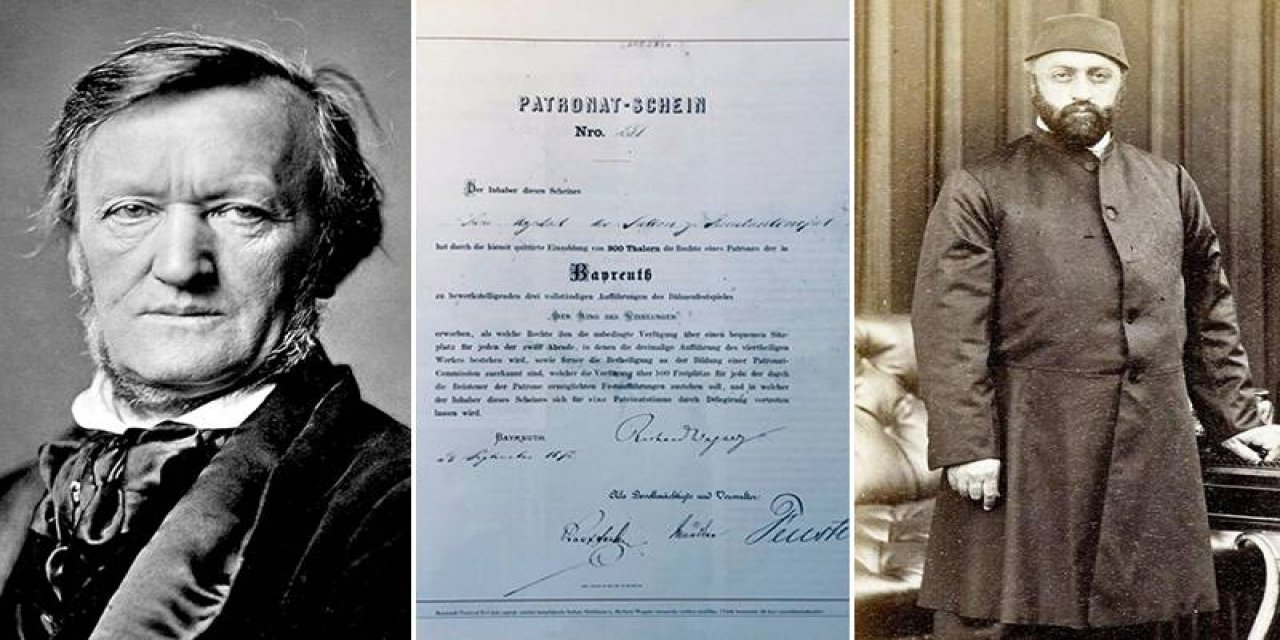 PATRONAT-SCHEIN
Nro.
Der Inhaber dieses Scheines
der Sultan
hat durch die hiemit quittirte Einzahlung von 300 Thalern die Rechte eines Patrones der in
Bayreuth
zu bewerkstelligenden drei vollständigen Aufführungen des Bühnenfestspieles
"DER RING DES NIBELUNGEN"
erworben, als welche Rechte ihm die unbedingte Verfügung über einen bequemen Sitz-
platz für jeden der zwölf Abende, in denen die dreimalige Aufführung des viertheiligen
Werkes bestehen wird, sowie ferner die Betheiligung an der Bildung einer Patronat-
Commission zuerkannt sind, welcher die Verfügung über 500 Freiplätze für jede der durch
die Beisteuer der Patrone ermöglichten Festaufführungen zustehen soll, und in welcher
der Inhaber dieses Scheines sich für eine Patronatstimme durch Delegirung vertreten
lassen wird.
BAYREUTH
September
Richard Wagner
Als Bevollmächtigte und Verwalter:
Feustel